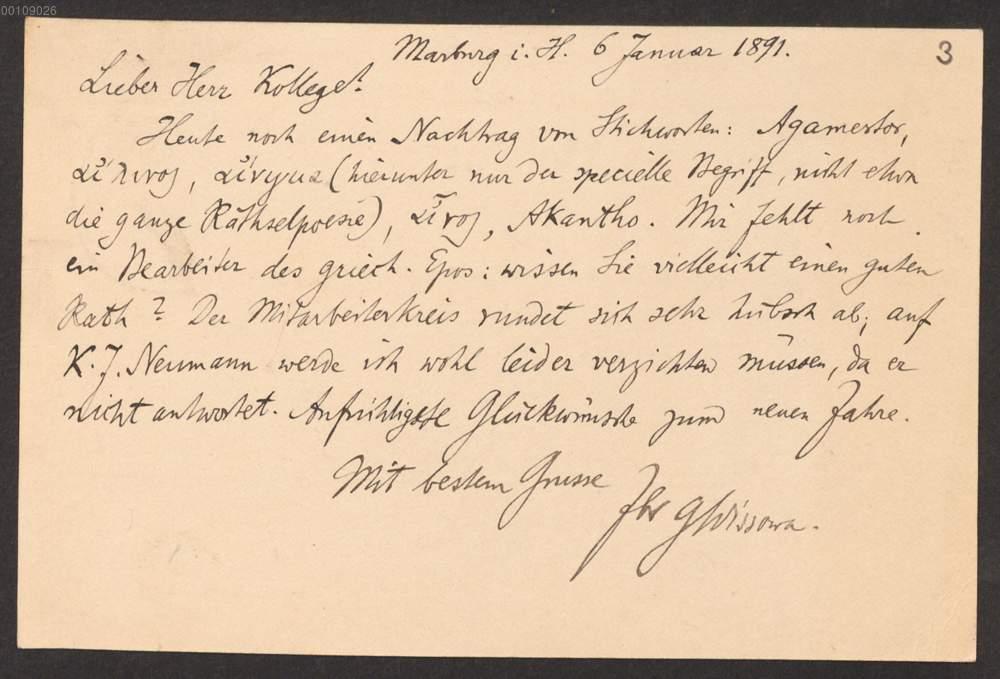 00109026
3
Marburg i. H. 6 Januar 1891.
Lieber Herr Kollege!
Heute noch einen Nachtrag von Stichworten: Agamestor,
αἴλινος, αἴνιγμα (hierunter nur der specielle Begriff, nicht etwa
die ganze Räthselpoesie), αἶνος, Akantho. Mir fehlt noch
ein Bearbeiter des griech. Epos: wissen Sie vielleicht einen guten
Rath? Der Mitarbeiterkreis rundet sich sehr hübsch ab; auf
K. J. Neumann werde ich wohl leider verzichten müssen, da er
nicht antwortet. Aufrichtigste Glückwünsche zum neuen Jahre.
Mit bestem Grusse
Ihr GWissowa.